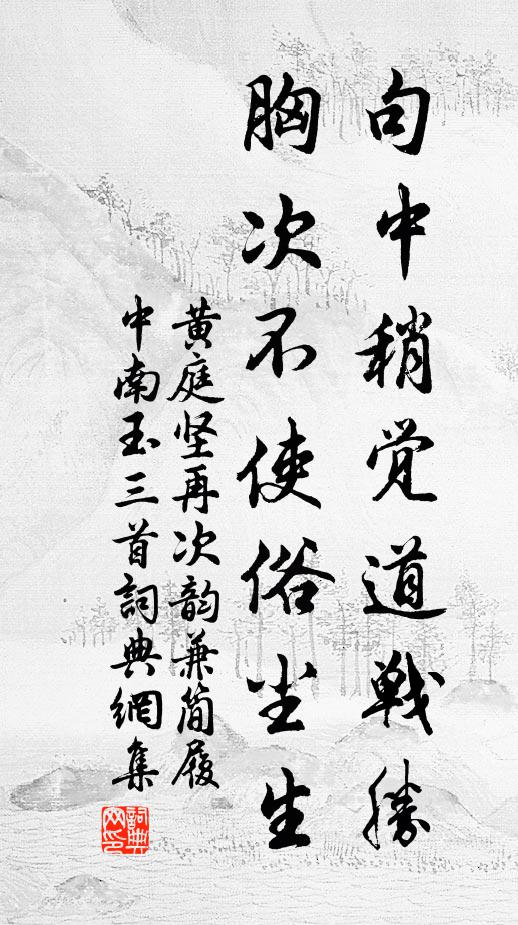 句中稍觉道戦勝
胸次不使俗尘生
黄庭坚再次韵兼简履
中南玉三首詞典網集
詞典
网印